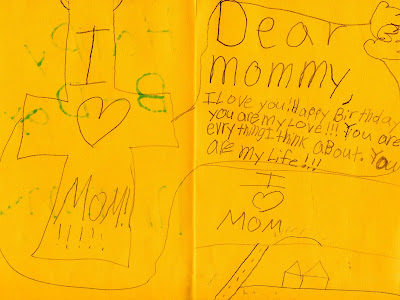 I
♡
MOM!
! ! ! ! !
Dear
mommy,
I Love you! Happy Birthday
you are my Love!!! You are
evry thing I think About. You
are my Life!!!
I
♡
MOM